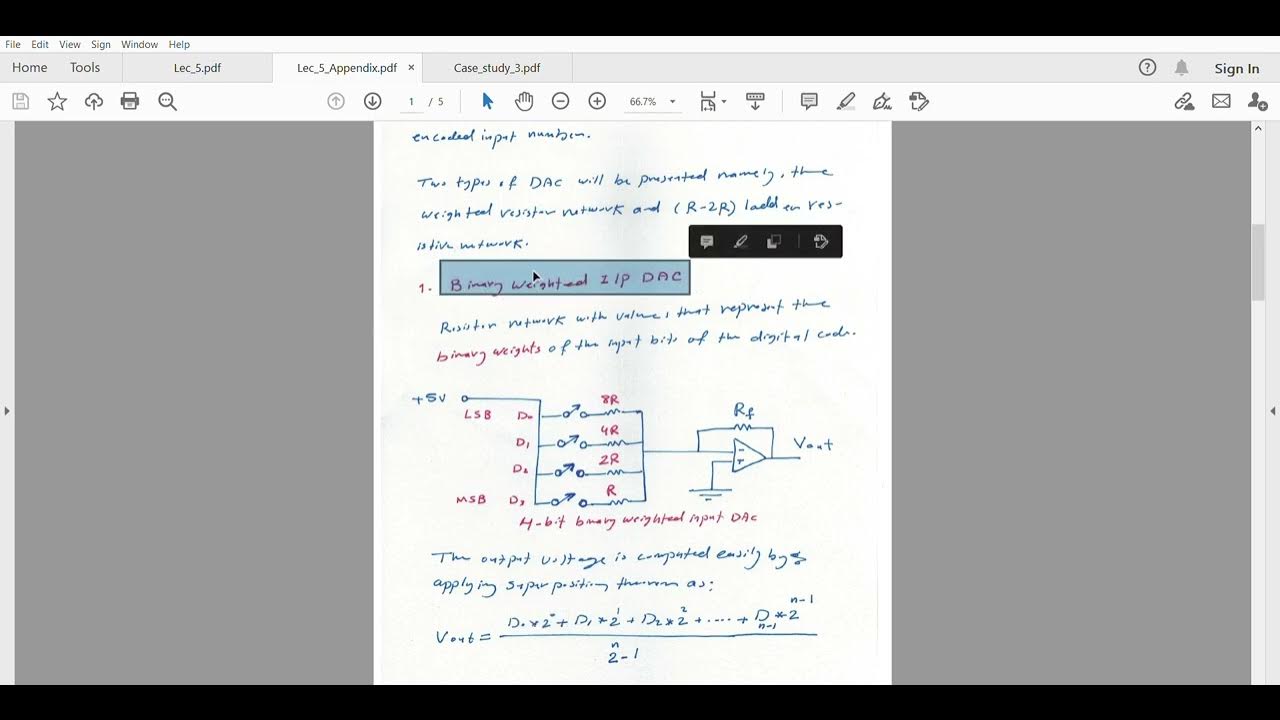 File Edit View Sign Window Help
Home Tools Lec_5.pdf Lec_5_Appendix.pdf × Case_study_3.pdf ? Sign In
1 / 5 66.7%
encoded input number.
Two types of DAC will be presented namely, the
weighted resistor network and (R-2R) ladder res-
istive network.
1. Binary Weighted I/P DAC
Resistor network with values that represent the
binary weights of the input bits of the digital code.
+5V
LSB D0 8R
D1 4R
D2 2R
MSB D3 R
Rf
- +
Vout
4-bit binary weighted input DAC
The output voltage is computed easily by
applying superposition theorem as:
Vout = D0*2^0 + D1*2^1 + D2*2^2 + .... + Dn-1*2^n-1
2^n-1